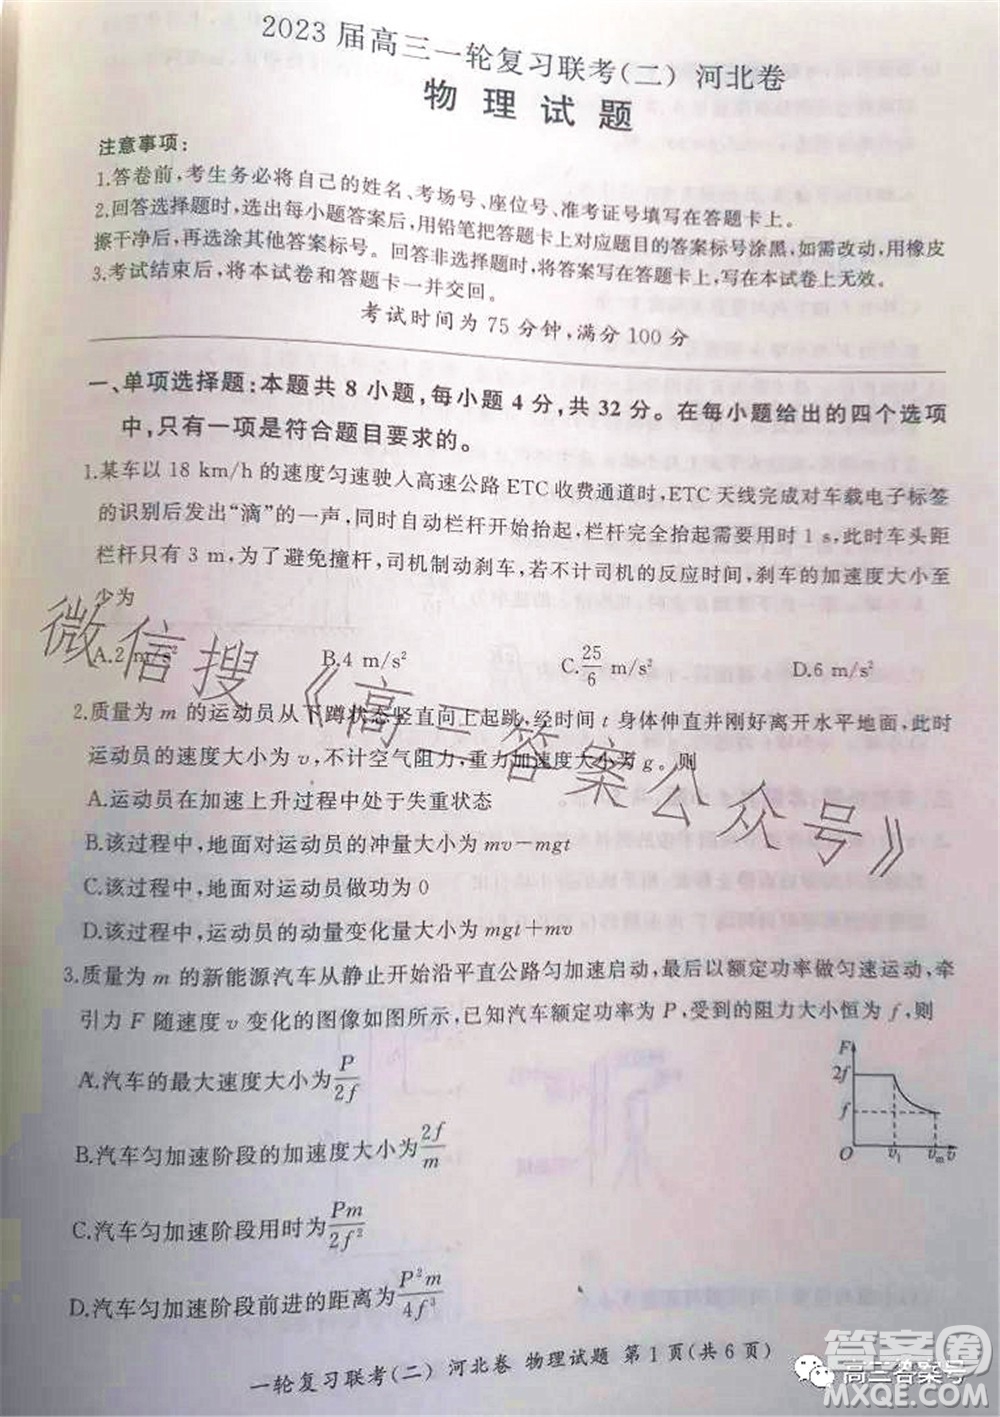 2023届高三一轮复习联考(二) 河北卷
物理试题
注意事项:
1.答卷前,考生务必将自己的姓名、考场号、座位号、准考证号填写在答题卡上。
2.回答选择题时,选出每小题答案后,用铅笔把答题卡上对应题目的答案标号涂黑,如需改动,用橡皮
擦干净后,再选涂其他答案标号。回答非选择题时,将答案写在答题卡上,写在本试卷上无效。
3.考试结束后,将本试卷和答题卡一并交回。
考试时间为75分钟,满分100分
一、单项选择题:本题共8小题,每小题4分,共32分。在每小题给出的四个选项
中,只有一项是符合题目要求的。
1.某车以18 km/h的速度匀速驶入高速公路ETC收费通道时,ETC天线完成对车载电子标签
的识别后发出“滴”的一声,同时自动栏杆开始抬起,栏杆完全抬起需要用时1 s,此时车头距
栏杆只有3 m,为了避免撞杆,司机制动刹车,若不计司机的反应时间,刹车的加速度大小至
少为
A.2 m/s² B.4 m/s² C.25/6 m/s² D.6 m/s²
2.质量为m的运动员从下蹲状态竖直向上起跳,经时间t身体伸直并刚好离开水平地面,此时
运动员的速度大小为v,不计空气阻力,重力加速度大小为g。则
A.运动员在加速上升过程中处于失重状态
B.该过程中,地面对运动员的冲量大小为mv-mgt
C.该过程中,地面对运动员做功为0
D.该过程中,运动员的动量变化量大小为mgt+mv
3.质量为m的新能源汽车从静止开始沿平直公路匀加速启动,最后以额定功率做匀速运动,牵
引力F随速度v变化的图像如图所示,已知汽车额定功率为P,受到的阻力大小恒为f,则
A.汽车的最大速度大小为P/2f
B.汽车匀加速阶段的加速度大小为2f/m
C.汽车匀加速阶段用时为Pm/2f²
D.汽车匀加速阶段前进的距离为P²m/4f³
F
2f
f
O v₁ vₘ v
一轮复习联考(二) 河北卷 物理试题 第1页(共6页)
微信搜《高三答案公众号》
高三答案号
答案圈
MXQE.COM